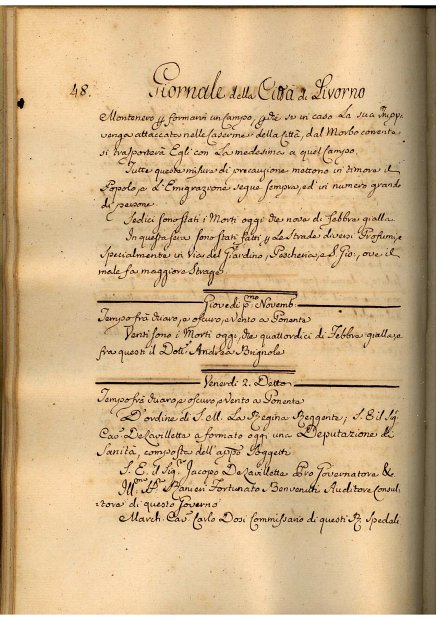 48. Giornale della Città di Livorno
Montenero p formarvi un Campo, p che se in caso la sua Trupp.
venga attaccata nelle Caserme della Città, dal Morbo converrà
si trasporterà Egli con la medesima a quel Campo.
Tutte queste misure di precauzione mettono in timore il
Popolo, e l'Emigrazione segue sempre, ed in numero grande
di persone
Sedici sono stati i Morti oggi die nove di Febbre gialla.
In questa sera sono stati fatti p le Strade diversi Profumi, e
specialmente in Via del Giardino, Pescheria, e S. Gio:, ove il
male fa maggiore Strage
Giovedi p.mo Novemb.
Tempo frà Chiaro, e oscuro, e Vento a Ponente
Venti sono i Morti oggi, die quattordici di Febbre gialla, e
fra questi il Dott. Andrea Brignole
Venerdi 2. Detto
Tempo frà Chiaro, e oscuro, e Vento a Ponente
D'ordine di S. M. la Regina Reggente; S. E il Sig.
Cav. De Lavillette à formato oggi una Deputazione di
Sanità, composta dell'app. Soggetti
S. E. il Sig. Jacopo De Lavillette Pro Governatore &
Ill.mo Sig. Ranieri Fortunato Benvenuti Auditore Consul-
tore di questo Governo
March. Cav. Carlo Dosi Commissario di questi R. Spedali